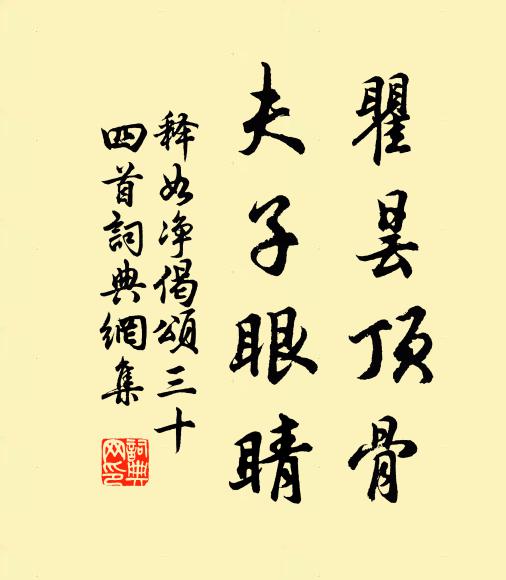 瞿昙顶骨
夫子眼睛
释如净偈颂三十
四首詞典網集
詞典網印